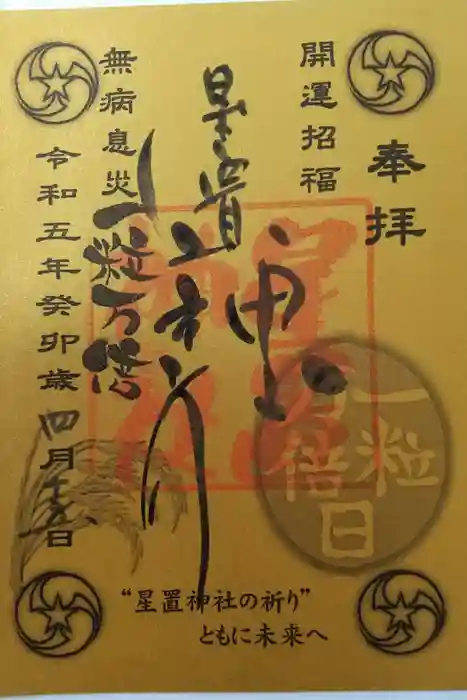 奉拝
開運招福
星置神社
一粒万倍
無病息災
令和五年癸卯歳四月十五日
一粒万倍日
“星置神社の祈り”
ともに未来へ